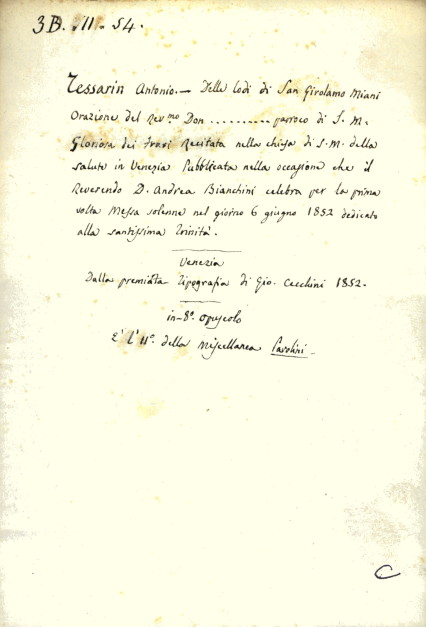 3B. 11. 54.
Tessarin Antonio. — Delle lodi di San Girolamo Miani
Orazione del Rev.mo Don .......... parroco di S. M.
Gloriosa dei Frari Recitata nella chiesa di S. M. della
salute in Venezia Pubblicata nella occasione che il
Reverendo D. Andrea Bianchini celebra per la prima
volta Messa solenne nel giorno 6 giugno 1852 dedicato
alla santissima Trinità.
Venezia
Dalla premiata Tipografia di Gio. Cecchini 1852.
in-8.° opuscolo
E' l'11.° della Miscellanea
C